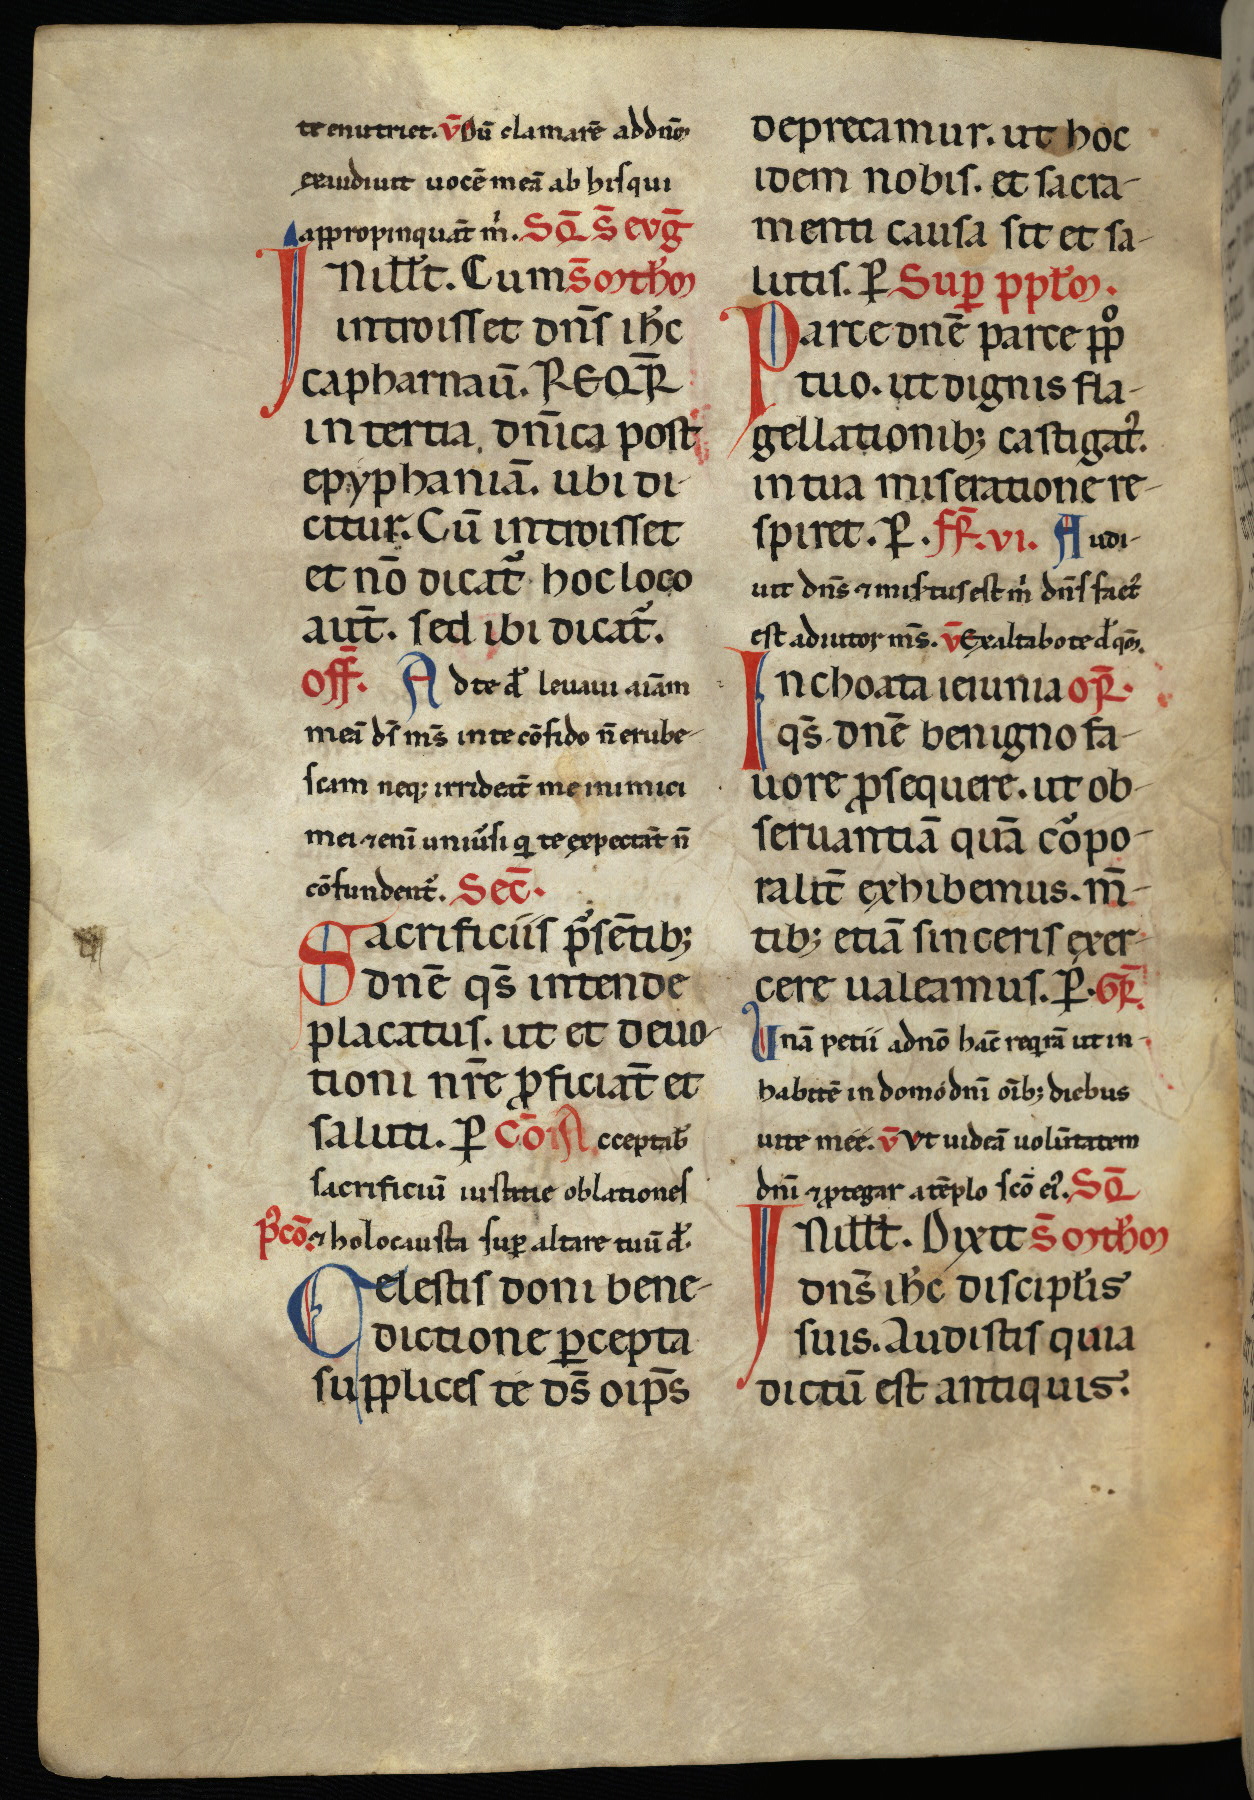 te enutriet. v̄ Dū clamarē ad dn̄m
exaudiuit uocē meā ab his qui
appropinquāt m̍. SQ̄ S̄ EVḠ
IN ill̄t. Cum S̄ Mth̄m
introisset dn̄s ih̄c
capharnaū. REQR̄
in tertia dn̄ica post
epyphaniā. ubi di-
citur. Cū introisset
et nō dicat̄ hoc loco
aut̄. sed ibi dicat̄.
Off̄. Ad te d̄ leuaui aīam
meā ds̄ ms̄ in te cōfido n̄ erube-
scam neq; irrideāt me inimici
mei ⁊ enī uniūsi qui te expectāt n̄
cōfundent̄. Sec̄.
Sacrificiis p̄sētib;
dn̄e qs̄ intende
placatus. ut et deuo-
tioni nr̄e ꝓficiat̄ et
saluti. ꝑ Cō Acceptab̄
sacrificiū iustitie oblationes
p̄cō. ⁊ holocausta suꝑ altare tuū d̄.
Celestis doni bene-
dictione ꝑcepta
supplices te ds̄ oip̄s
deprecamur. ut hoc
idem nobis. et sacra-
menti causa sit et sa-
lutis. ꝑ Suꝑ ppl̄m.
Parce dn̄e parce ppᵒ
tuo. ut dignis fla-
gellationib; castigat̄.
in tua miseratione re-
spiret. ꝑ. FR̄. VI. Audi-
uit dn̄s ⁊ mis̄tus est m̍ dn̄s fact̄
est adiutor ms̄. v̄ Exaltabo te d̄ qm̄.
Inchoata ieiunia OR̄.
qs̄ dn̄e benigno fa-
uore ꝓsequere. ut ob-
seruantiā quā cōpo-
ralit̄ exhibemus. m̄-
tib; etiā sinceris exer-
cere ualeamus. ꝑ. GR̄.
Unā petii a dnō hāc reqirā ut in-
habitē in domo dn̄i oīb; diebus
uite mee. v̄ Vt uideā uolūtatem
dn̄i ⁊ ꝓtegar a tēplo scō ei᾽. SQ̄
IN ill̄t. Dixit S̄ Mth̄m
dn̄s ih̄c discipl̄is
suis. Audistis quia
dictū est antiquis.